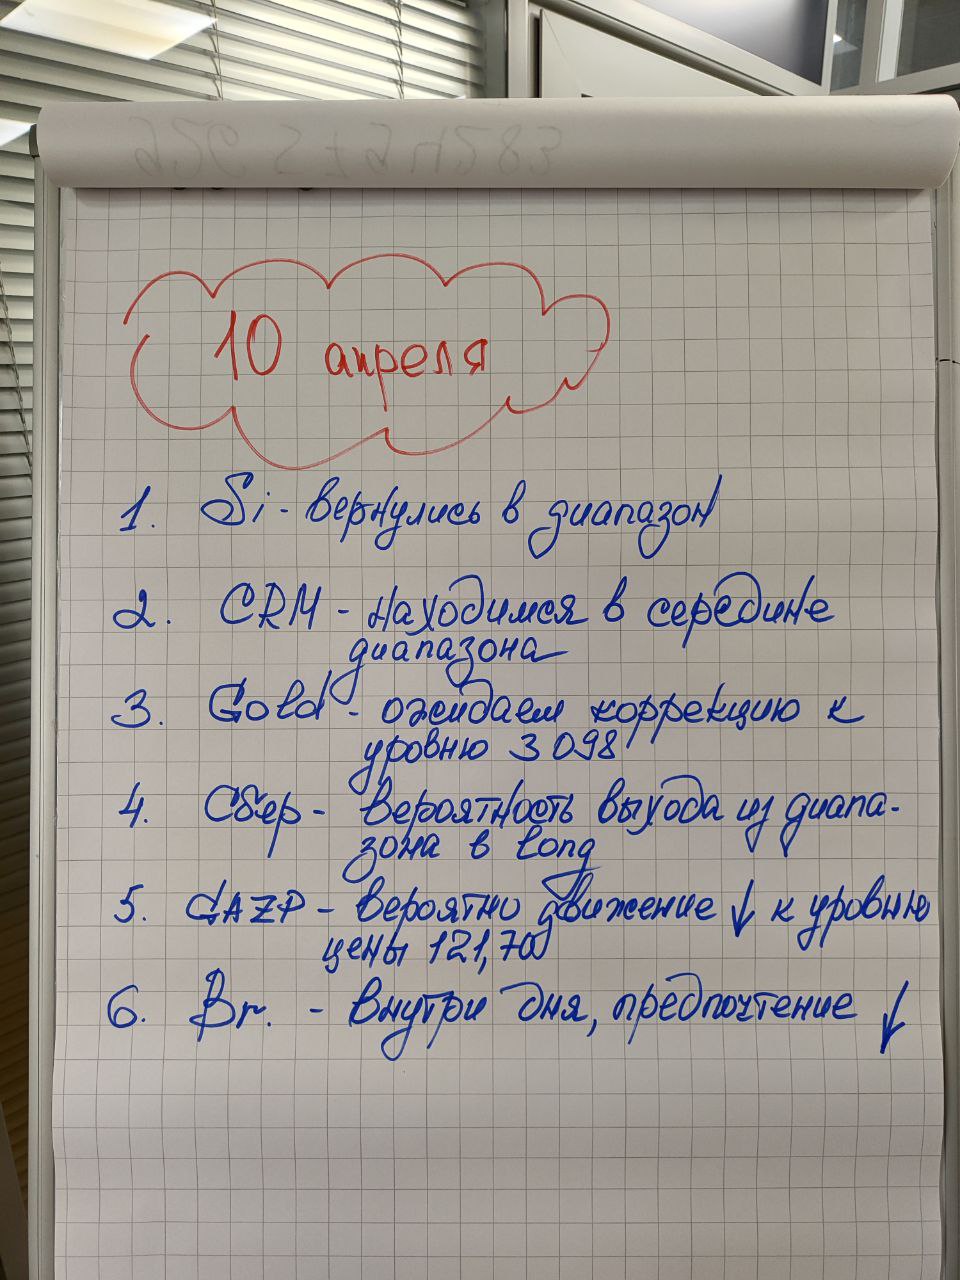 10 апреля
1. Si - вернулись в диапазон
2. CRM - находимся в середине
диапазона
3. Gold - ожидаем коррекцию к
уровню 3 098
4. Сбер - вероятность выхода из диапа-
зона в long
5. GAZP - вероятно движение ↓ к уровню
цены 121,70
6. Br. - внутри дня, предпочтение ↓